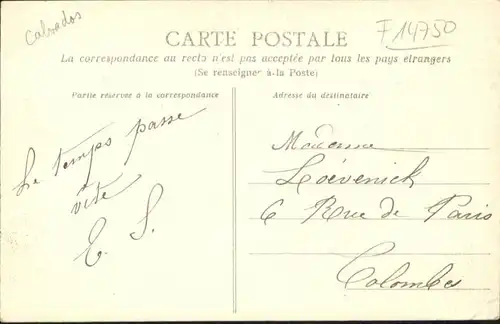 Calvados
F 14750
CARTE POSTALE
La correspondance au recto n'est pas acceptée par tous les pays étrangers
(Se renseigner à la Poste)
Partie réservée à la correspondance
Adresse du destinataire
Le temps passe
vite
E. S.
Madame
Loevenick
6 Rue de Paris
Colombes